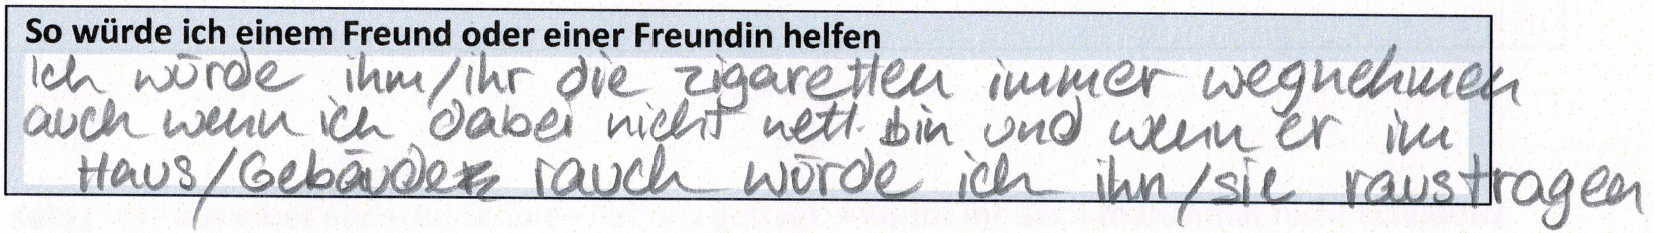 So würde ich einem Freund oder einer Freundin helfen
Ich würde ihm/ihr die zigaretten immer wegnehmen
auch wenn ich dabei nicht nett bin und wenn er im
Haus/Gebäude rauch würde ich ihn/sie raustragen